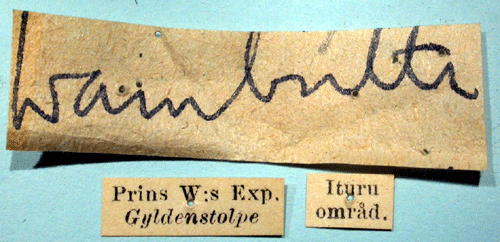 Wambutti
Prins W:s Exp.
Gyldenstolpe
Ituru
områd.